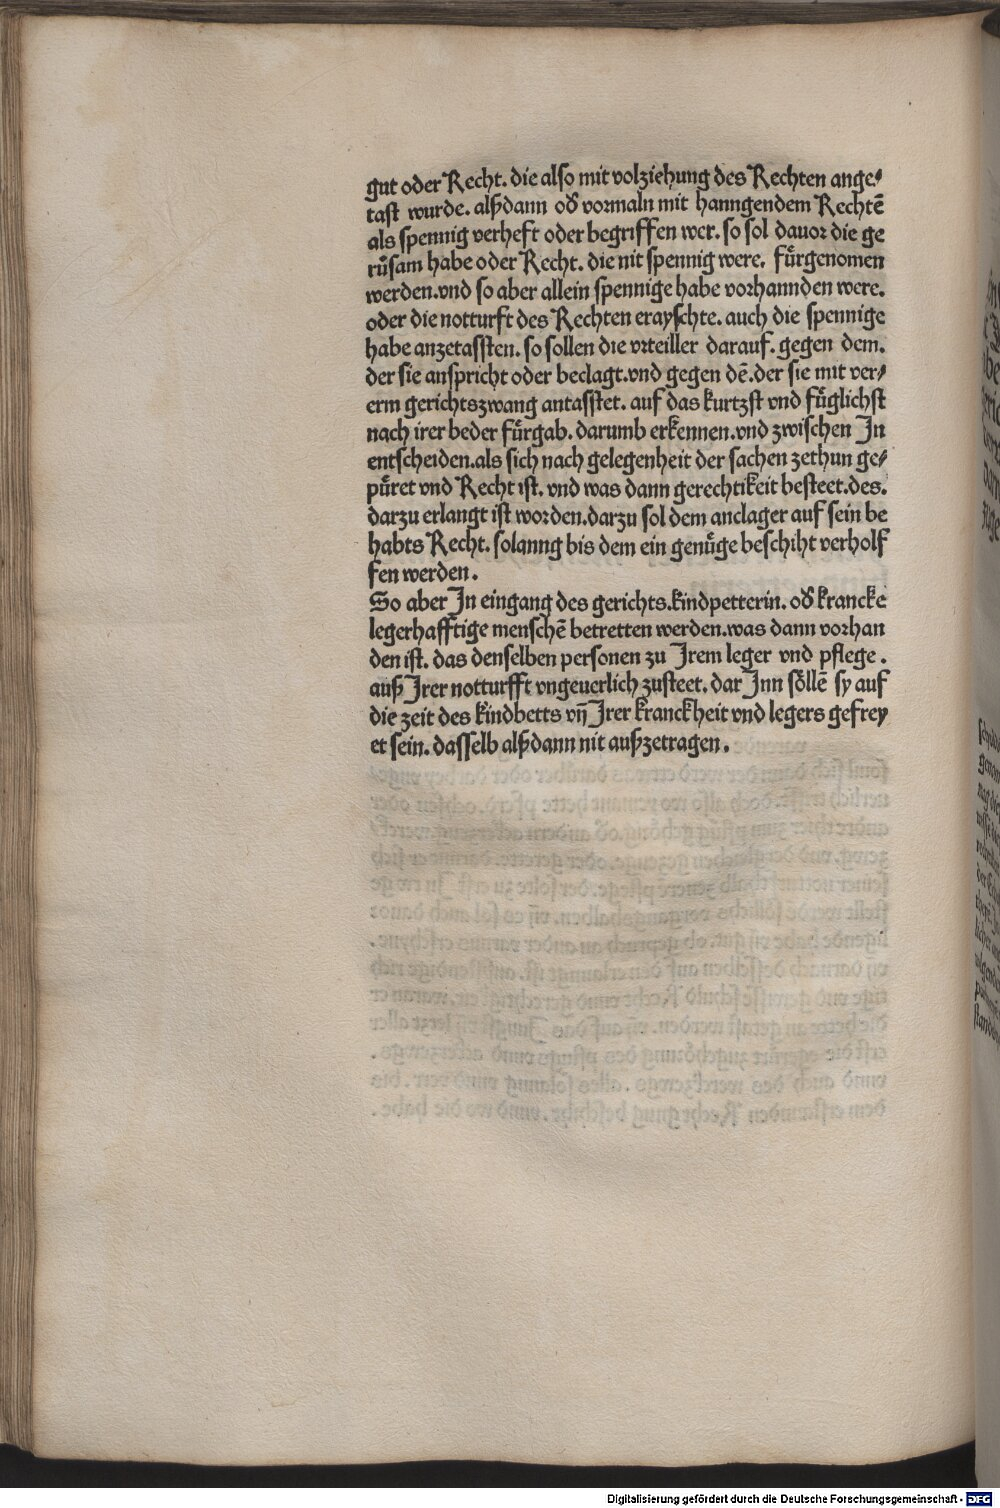 gut oder Recht. die also mit volziehung des Rechten ange⸗
tast wurde. alßdann od̕ vormaln mit hanngendem Rechtē
als spennig verheft oder begriffen wer. so sol dauor die ge
růsam habe oder Recht. die nit spennig were. fu̎rgenomen
werden.vnd so aber allein spennige habe vorhannden were.
oder die notturft des Rechten erayschte. auch die spennige
habe anzetassten. so sollen die vrteiller darauf. gegen dem.
der sie anspricht oder beclagt.vnd gegen dē.der sie mit ver⸗
erm gerichtszwang antasstet. auf das kurtzst vnd fu̎glichst
nach irer beder fu̎rgab. darumb erkennen.vnd zwischen In
entscheiden.als sich nach gelegenheit der sachen zethun ge⸗
pu̎ret vnd Recht ist. vnd was dann gerechtikeit besteet.des.
darzu erlangt ist worden.darzu sol dem anclager auf sein be
habts Recht. solanng bis dem ein genu̎ge beschiht verholf
fen werden.
So aber In eingang des gerichts.kindpetterin. od̕ krancke
legerhafftige menschē betretten werden.was dann vorhan
den ist. das denselben personen zu Irem leger vnd pflege.
auß Irer notturfft vngeuerlich zusteet. dar Inn söllē sy auf
die zeit des kindbetts vn̄ Irer kranckheit vnd legers gefrey
et sein. dasselb alßdann nit außzetragen.
Digitalisierung gefördert durch die Deutsche Forschungsgemeinschaft - DFG